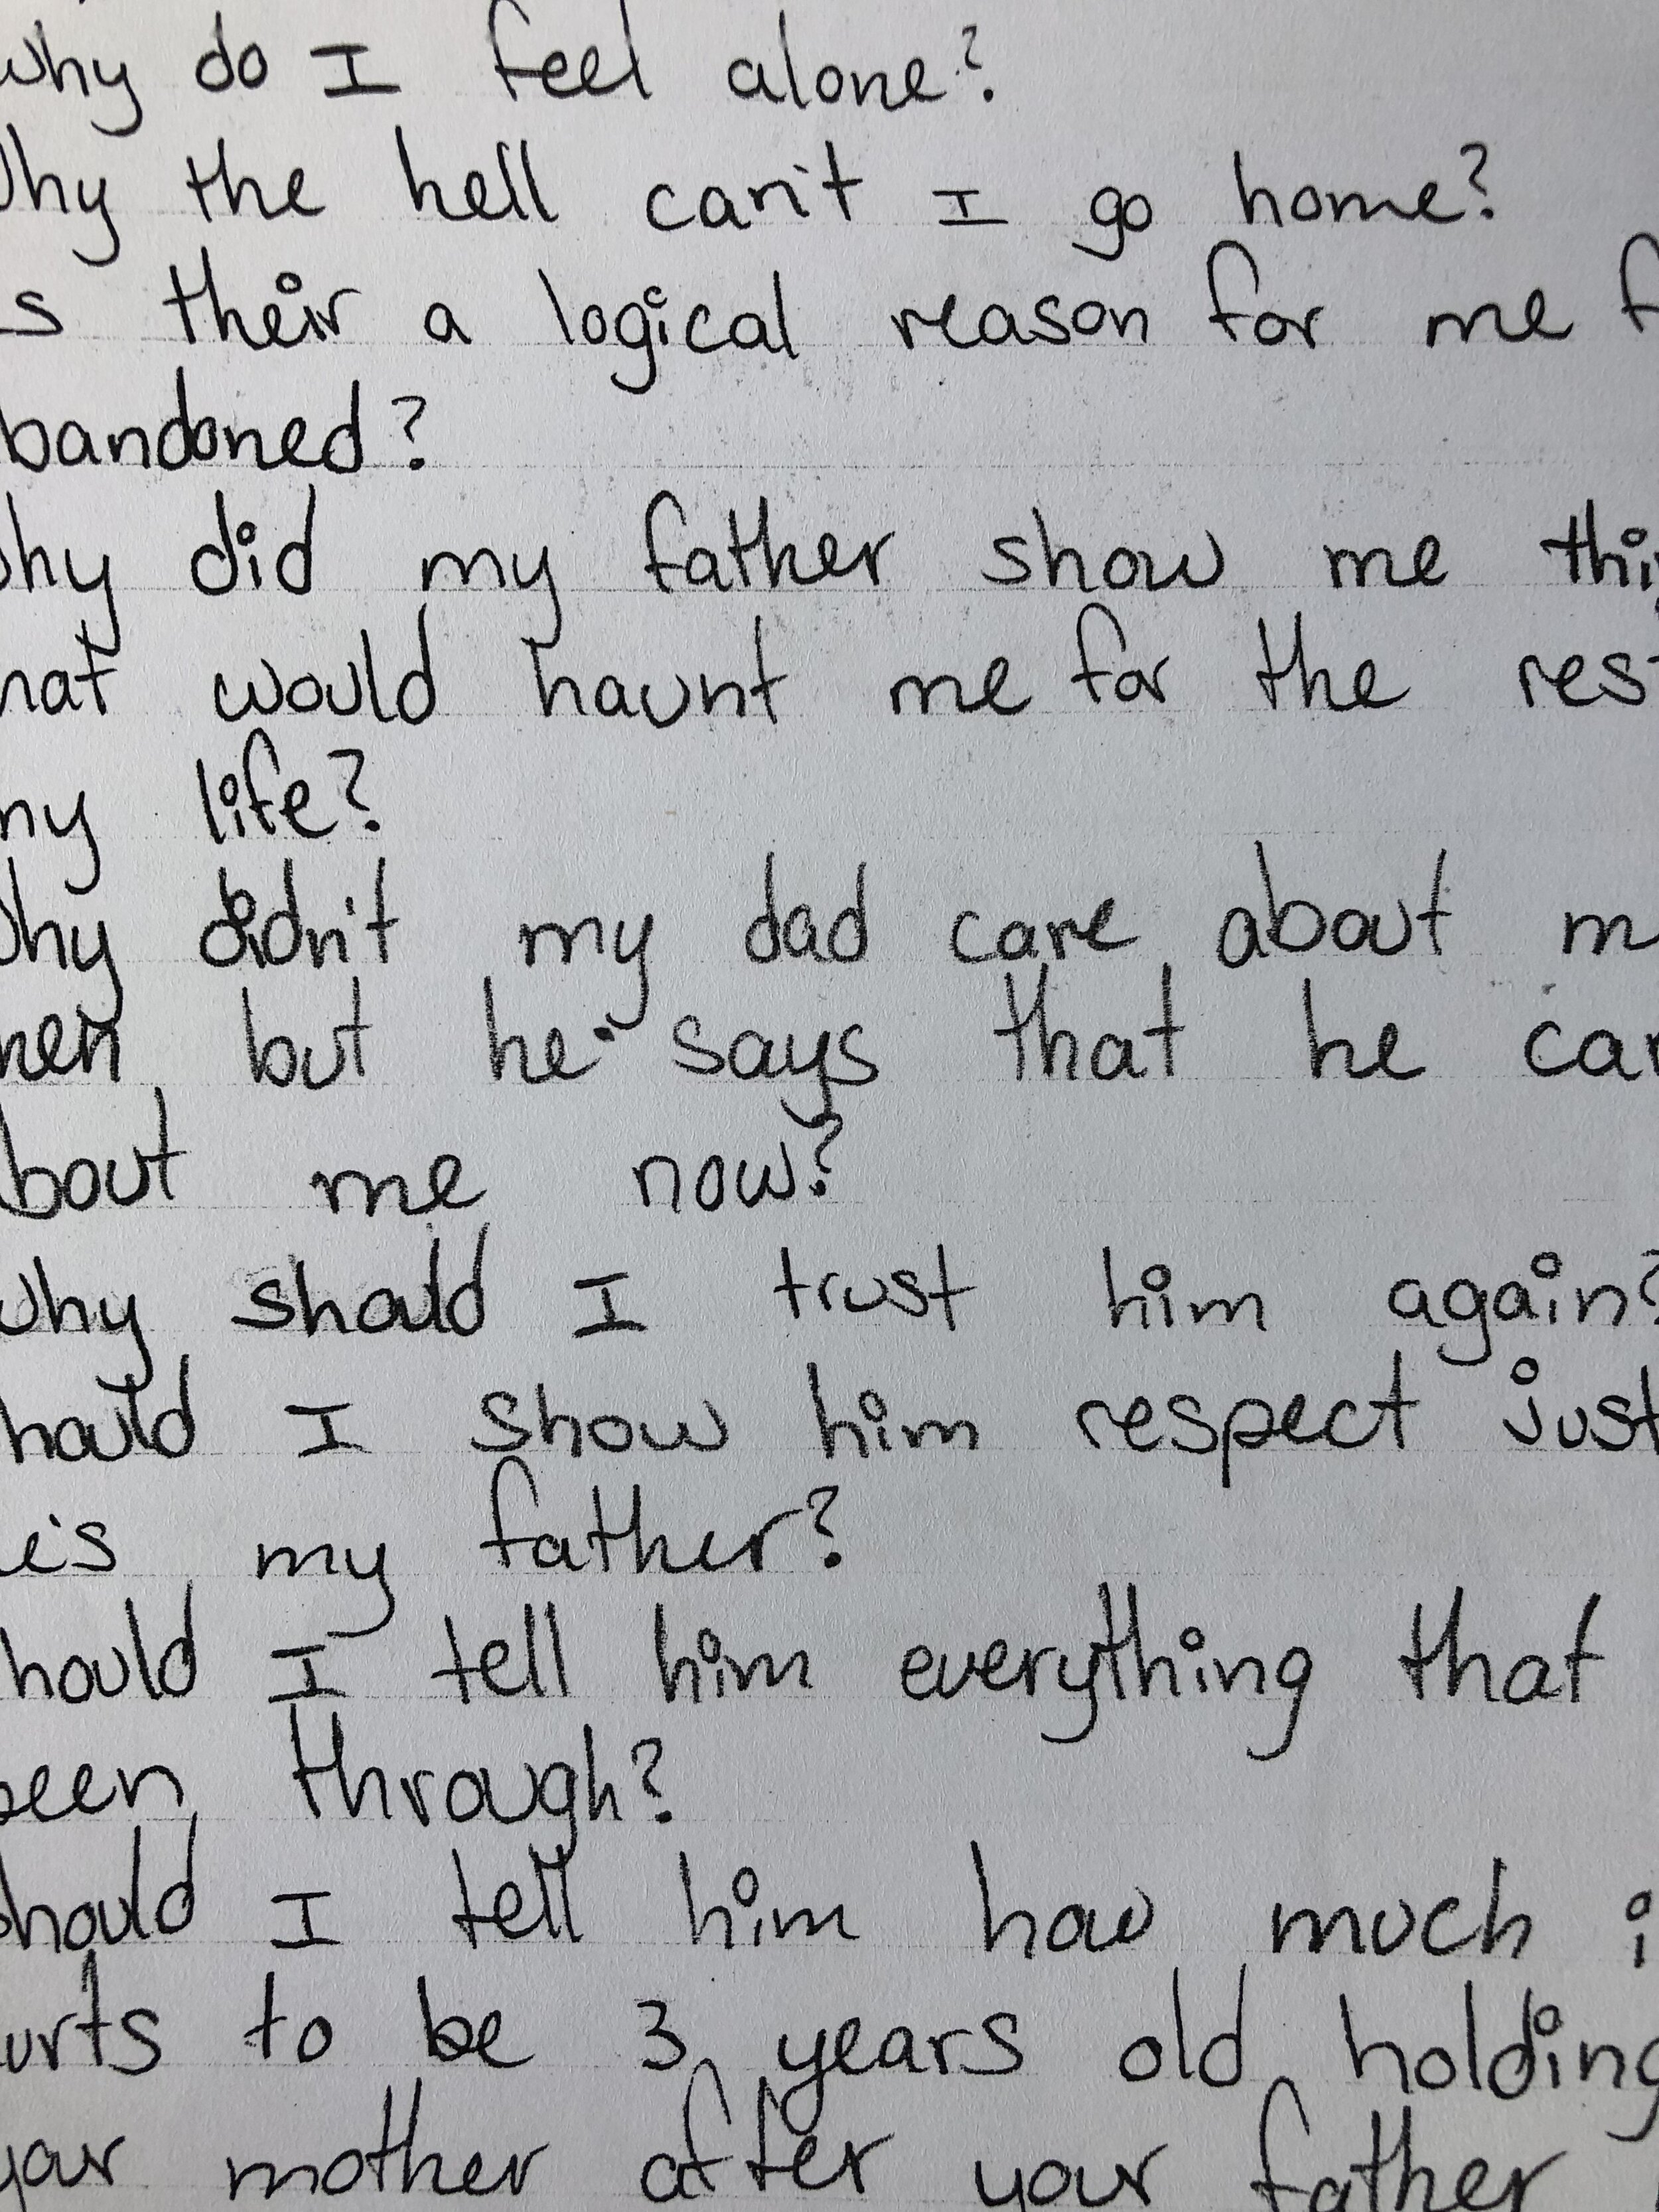 why do I feel alone?
Why the hell can't I go home?
s their a logical reason for me f
bandoned?
hy did my father show me thi
hat would haunt me for the rest
my life?
hy didn't my dad care about m
hen but he says that he car
bout me now?
why should I trust him again?
hould I show him respect just
e's my father?
hould I tell him everything that
been through?
should I tell him how much i
urts to be 3 years old holding
your mother after your father